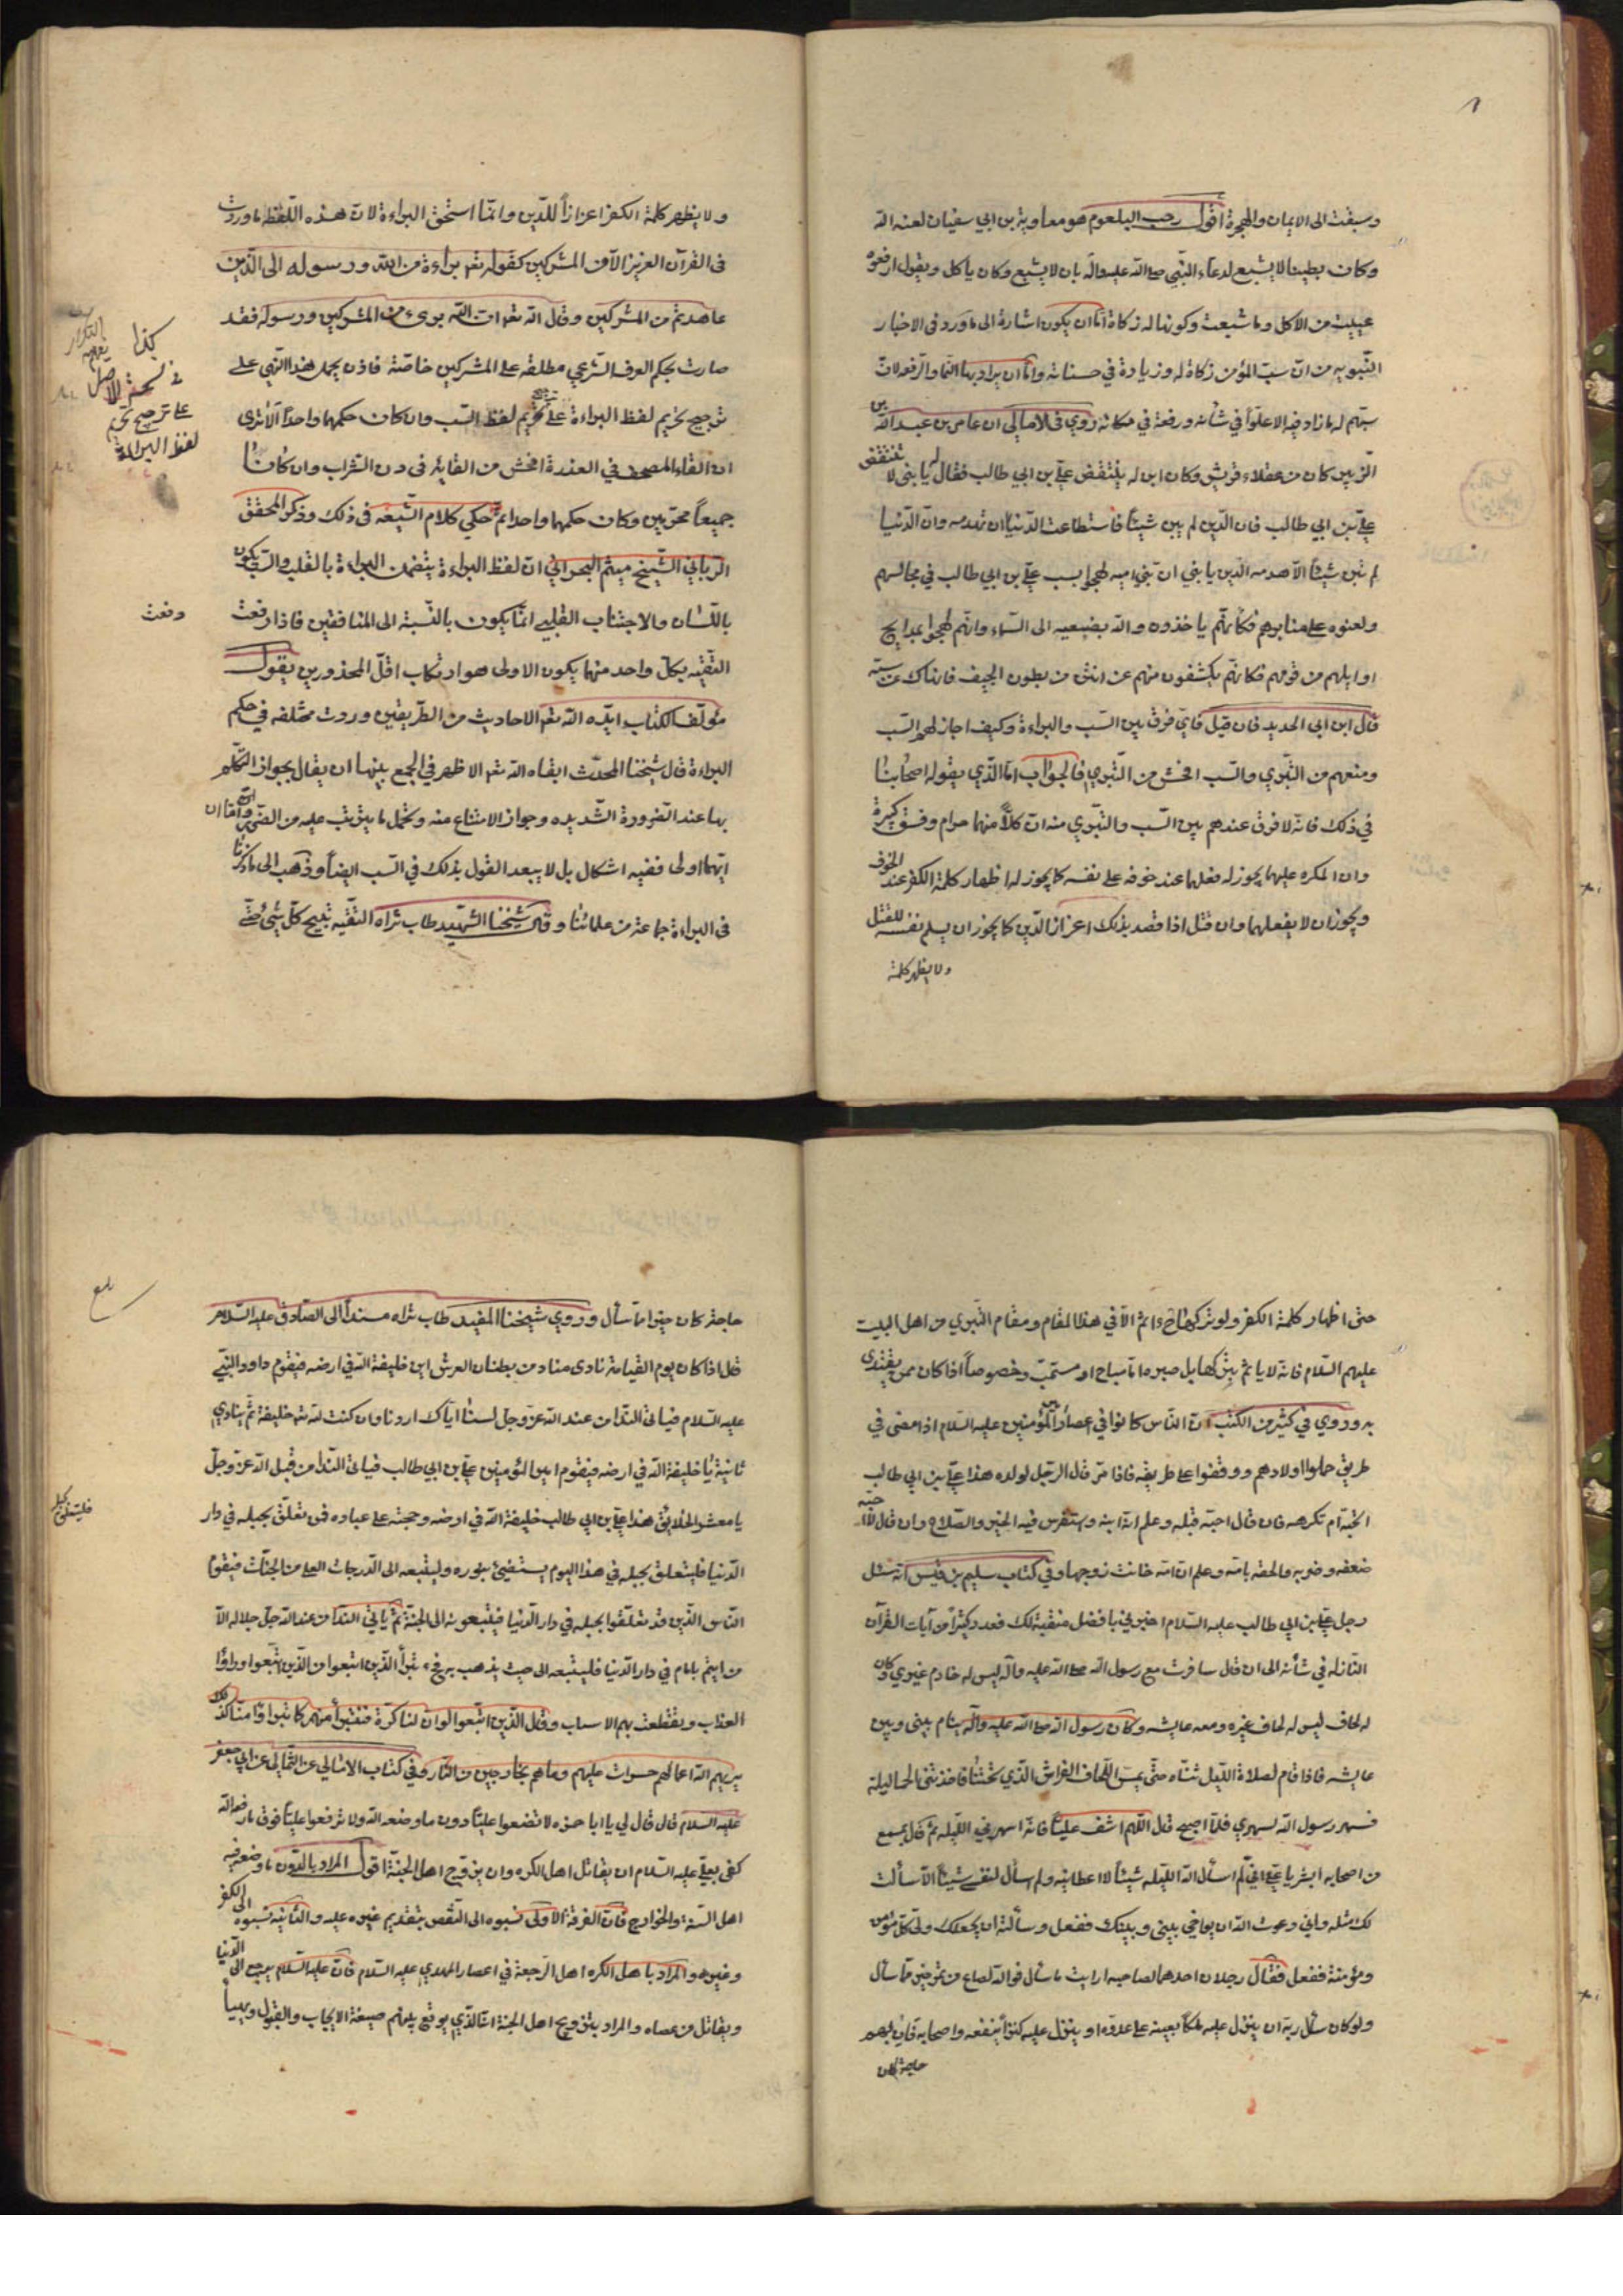 وسبقت الى الايمان والهجرة اقول رحب البلعوم هو معاوية بن ابي سفيان لعنه الله
وكان بطينا لا يشبع لدعاء النبي صلى الله عليه واله بان لا يشبع وكان ياكل ويقول ارفعوه
عييت من الاكل وما شبعت وكونها له زكاة امّا ان يكون اشارة الى ما ورد في الاخبار
النبويه من انّ سبّ المؤمن زكاة له وزيادة في حسناته وامّا ان يراد بها النماء والرفعه لانّ
سبّهم له ما زاد فيه الا علوّا في شأنه ورفعة في مكانه روي في الامالي ان عامر بن عبد الله بن
الزبير كان من عقلاء قريش وكان ابن له ينتقص علي بن ابي طالب فقال له يا بنى لا تنتقص
علي بن ابي طالب فان الدّين لم يبن شيئا فاستطاعت الدّنيا ان تهدمه وان الدّنيا
لم تبن شيئا الاّ هدمه الدّين يا بني ان بني اميه لهجوا بسب علي بن ابي طالب في مجالسهم
ولعنوه على منابرهم فكأنّهم ياخذون والله بضبعيه الى السّماء وانّهم لهجوا بمدايح
اوايلهم من قومهم فكانهّم يكشفون منهم عن انتن من بطون الجيف فانهاك عن سبّه
قال ابن ابى الحديد فان قيل فايّ فرق بين السّب والبراءة وكيف اجاز لهم السّب
ومنعهم من التبّري والسّب افحش من التبّري فالجواب امّا الّذي يقوله اصحابنا
في ذلك فانّه لا فرق عندهم بين السّب والتبّري منه انّ كلاّ منهما حرام وفسق كبيرة
وان المكره عليهما يجوز له فعلهما عند خوفه على نفسه كما يجوز له اظهار كلمة الكفر عند الخوف
ويجوز ان لا يفعلهما وان قتل اذا قصد بذلك اعزاز الدّين كما يجوز ان يسلم نفسه للقتل
ولا يظهر كلمة
ولا يظهر كلمة الكفر اعزازاً للدّين وانمّا استحق البراءة لانّ هذه اللّفظه ما وردت
فى القرآن العزيز الاّ من المشركين كقوله تعالى براءة من الله ورسوله الى الّذين
عاهدتم من المشركين وقال الله تعالى انّ الله بريء من المشركين ورسوله فقد
صارت بحكم العرف الشّرعي مطلقه على المشركين خاصّة فاذن يحمل هذا النّهي على
ترجيح تحريم لفظ البراءة على تحريم لفظ السّب وان كان حكمهما واحداً الاترى
ان القاء المصحف في العذرة افحش من القائه فى دن الشّراب وان كانا
جميعاً محرّمين وكان حكمهما واحدا ثم حكي كلام الشّيعه فى ذلك وذكر المحقّق
الربّاني الشّيخ ميثم البحراني ان لفظ البراءة يتضمن البراءة بالقلب والسّب يكون
باللّسان والاجتناب القلبي انّما يكون بالنّسبة الى المنافقين فاذا رفعت
التقيّه بكلّ واحد منهما يكون الاولى هو ارتكاب اقلّ المحذورين يقول
مؤلّف الكتاب ايّده الله تعالى الاحاديث من الطّريقين وردت مختلفه في حكم
البراءة قال شيخنا المحدّث ابقاه الله تعالى الاظهر في الجمع بينهما ان يقال بجواز التّكلم
بها عند الضرورة الشّديده وجواز الامتناع منه وتحمل ما يترتب عليه من القتل وامّا ان
ايّهما اولى ففيه اشكال بل لا يبعد القول بذلك في السّب ايضاً وذهب الى ما ذكرنا
فى البراءة جماعة من علمائنا وقال شيخنا الشّهيد طاب ثراه التقّيه تبيح كلّ شيء حتّى
كذا
نسخة الاصل
على ترجيح تحريم
لفظ البراءة
دفعت
حتى اظهار كلمة الكفر ولو تركها ح اثم الاّ في هذا المقام ومقام التّبري من اهل البيت
عليهم السّلام فانّه لا ياثم بتركها بل صبره امّا مباح او مستحبّ وخصوصاً اذا كان ممن يقتدى
به وروي في كثير من الكتب ان النّاس كانوا في اعصار امير المؤمنين عليه السّلام اذا مضى في
طريق حملوا اولادهم ووقفوا على طريقه فاذا مرّ قال الرّجل لولده هذا علي بن ابي طالب
اتحبّه ام تكرهه فان قال احبّه قبله وعلم انّه ابنه وتفرس فيه الخير والصّلاح وان قال لا احبّه
ضعفه وضربه والحقه بامّه وعلم ان امّه خانت زوجها وفي كتاب سليم بن قيس انّه سئل
رجل علي بن ابي طالب عليه السّلام اخبرني بافضل منقبة لك فعدد كثيراً من آيات القرآن
النّازله في شأنه الى ان قال سافرت مع رسول الله صلى الله عليه واله ليس له خادم غيري وكان
له لحاف ليس له لحاف غيره ومعه عايشه وكان رسول الله صلى الله عليه وآله ينام بينى وبين
عايشه فاذا قام لصلاة اللّيل ثنّاه حتّى يمس اللّحاف الفراش الّذي تحتنا فاخذتنى الحمى ليلة
فسهر رسول الله لسهري فلمّا اصبح قال اللّهم اشف عليّاً فانّه اسهرني اللّيله ثمّ قال بمسمع
من اصحابه ابشر يا علي انّي لم اسأل الله اللّيله شيئاً الا اعطانيه ولم اسأل لنفسي شيئاً الاّ سألت
لك مثله واني دعوت الله ان يواخي بينى وبينك ففعل وسألته ان يجعلك ولي كلّ مؤمن
ومؤمنة ففعل فقال رجلان احدهما لصاحبه ارايت ما سأل فوالله لصاع من تمر خير ممّا سأل
ولو كان سأل ربّه ان ينزل عليه ملكاً يعينه على عدوّه او ينزل عليه كنزاً ينفعه واصحابه فان بهم
حاجة كان
حاجة كان خيرا مما سأل وروي شيخنا المفيد طاب ثراه مسنداً الى الصّادق عليه السّلام
قال اذا كان يوم القيامة نادى مناد من بطنان العرش اين خليفة الله في ارضه فيقوم داود النبّي
عليه السّلام فيأتى النّداء من عند الله عزّ وجل لسنا ايّاك اردنا وان كنت لله تعالى خليفة ثمّ ينادي
ثانية يا خليفة الله في ارضه فيقوم امير المؤمنين علي بن ابي طالب فياتى النّداء من قبل الله عزّ وجلّ
يا معشر الخلائق هذا علي بن ابي طالب خليفة الله في ارضه وحجته على عباده فمن تعلّق بحبله في دار
الدّنيا فليتعلق بحبله في هذا اليوم يستضئ بنوره وليتبعه الى الدّرجات العلى من الجنّات فيقوم
النّاس الّذين قد تعلّقوا بحبله في دار الدّنيا فيتبعونه الى الجنّة ثمّ يأتي النّداء من عند الله جلّ جلاله الاّ
من ائتم بامام في دار الدّنيا فليتبعه الى حيث يذهب به فح تبرّأ الّذين اتبعوا من الّذين اتّبعوا وراوا
العذاب وتقطعت بهم الاسباب وقال الّذين اتّبعوا لو ان لنا كرّة فنتبرأ منهم كما تبرؤا منّا كذلك
يريهم الله اعمالهم حسرات عليهم وما هم بخارجين من النّار وفي كتاب الامالي عن الثّمالي عن ابي جعفر
عليه السلام قال قال لي يا ابا حمزه لا تضعوا عليّاً دون ما وضعه الله ولا ترفعوا عليّاً فوق ما رفعه الله
كفى بعليّ عليه السّلام ان يقاتل اهل الكره وان يزوّج اهل الجنّة اقول المراد بالدّون ما وضعه فيه
اهل السنة والخوارج فانّ الفرقة الاولى نسبوه الى النّقص بتقديم غيره عليه والثانية نسبوه الى الكفر
وغيره والمراد باهل الكره اهل الرّجعة في اعصار المهدي عليه السّلام فانّ عليه السّلام يرجع الى الدّنيا
ويقاتل من عصاه والمراد بتزويج اهل الجنة انّه الّذي يوقع بينهم صيغة الايجاب والقبول
بلغ